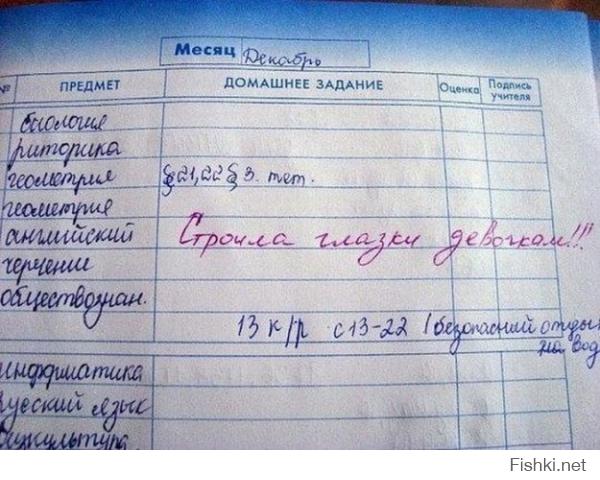 Месяц Декабрь
№ ПРЕДМЕТ ДОМАШНЕЕ ЗАДАНИЕ Оценка Подпись учителя
биология
риторика
геометрия §21,22 § 3. тет.
геометрия
английский Строила глазки девочкам!!!
черчение
обществознан.
13 к/р с13-22 (безопасний отдых
на вод
информатика
русский язык
физкультура
Fishki.net